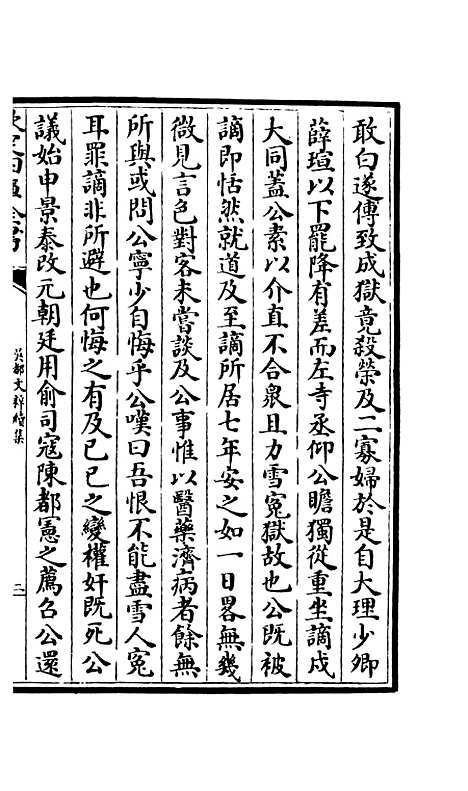 敢白遂傅致成獄竟殺榮及二寡婦於是自大理少卿
薛瑄以下罷降有差而左寺丞仰公瞻獨從重坐謫戍
大同蓋公素以介直不合衆且力雪寃獄故也公既被
謫即恬然就道及至謫所居七年安之如一日畧無幾
微見言色對客未嘗談及公事惟以醫藥濟病者餘無
所與或問公寧少自悔乎公嘆曰吾恨不能盡雪人寃
耳罪謫非所避也何悔之有及己巳之變權奸既死公
議始申景泰改元朝廷用俞司寇陳都憲之薦召公還
吳都文粹續集